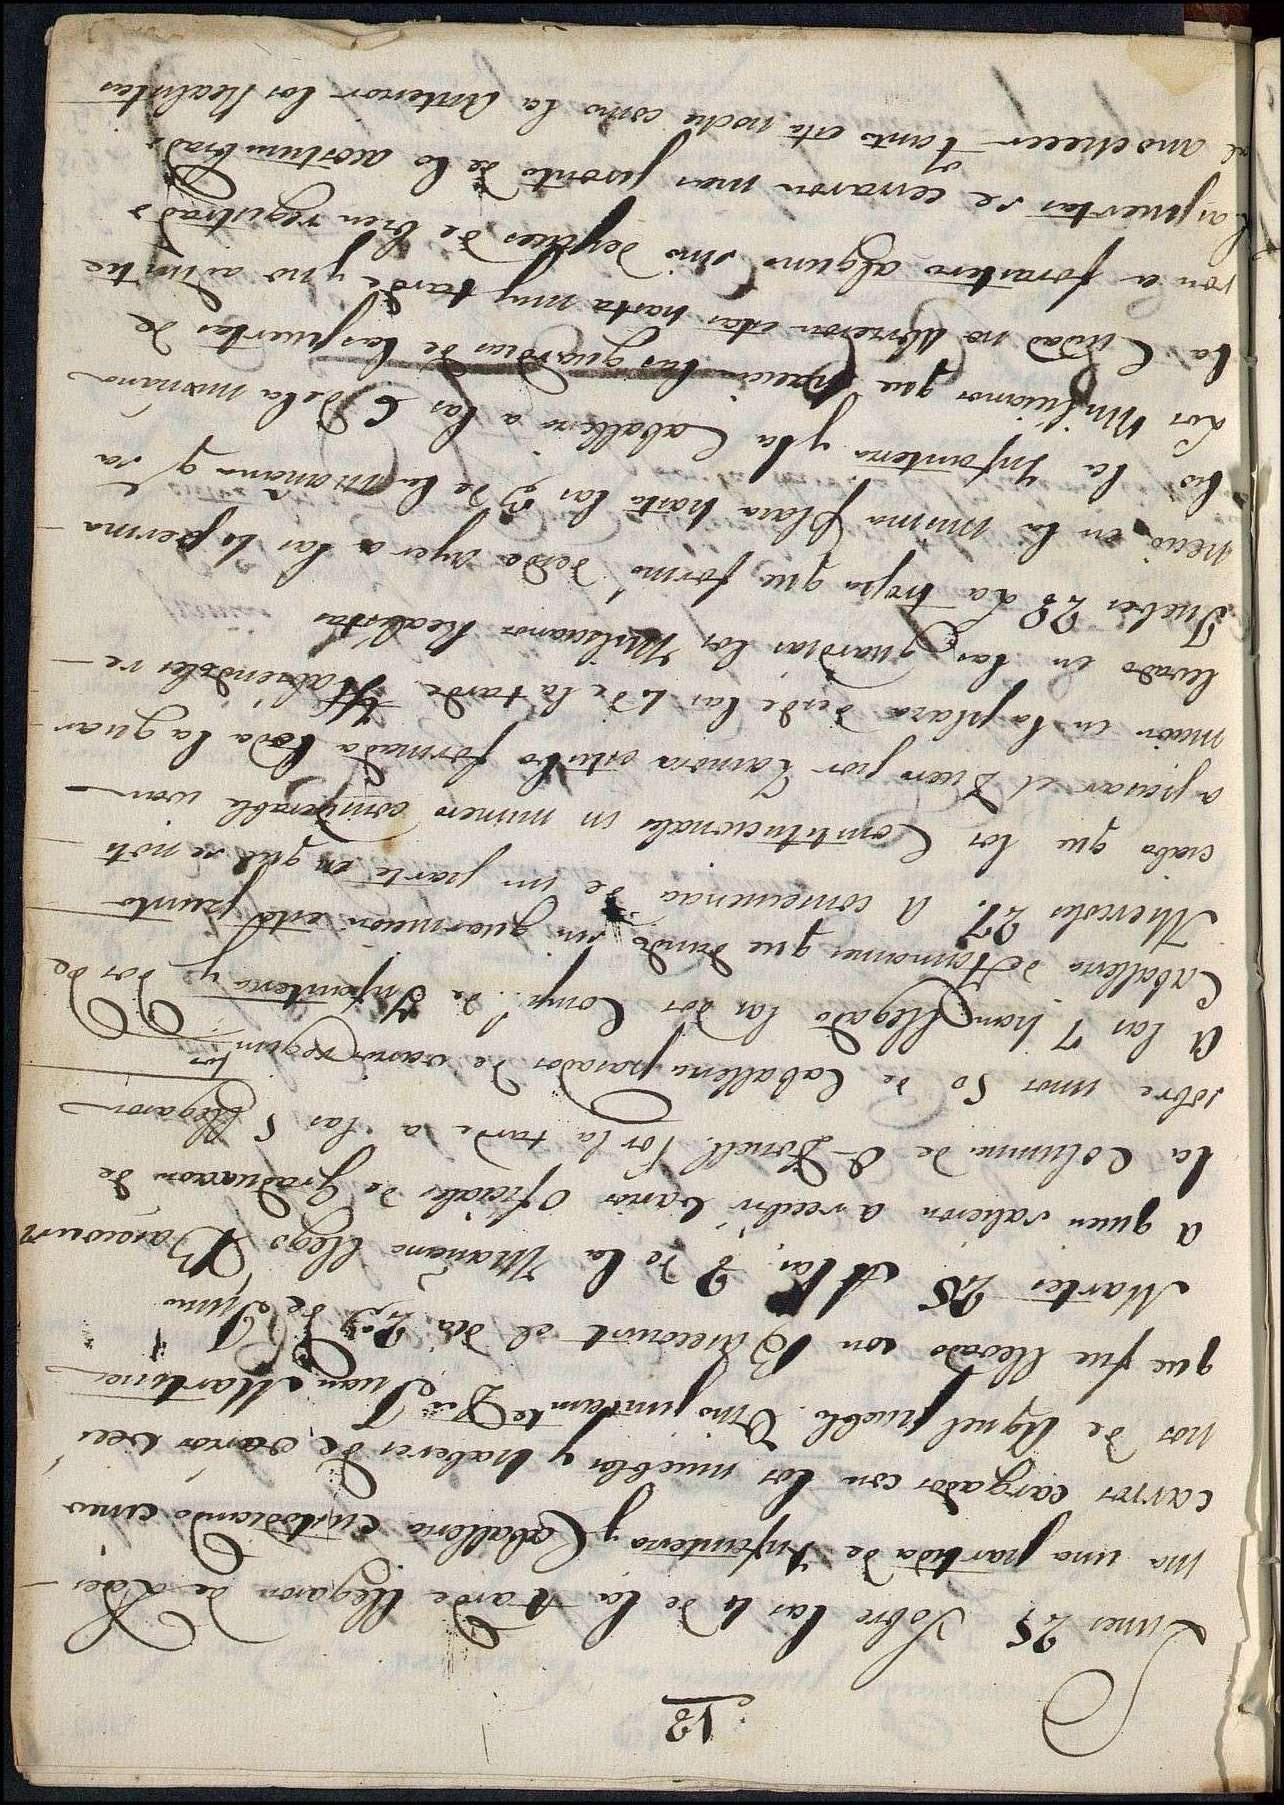 18
Lunes 25 Sobre las 4 de la tarde llegaron de Ler-
ma una partida de Infanteria y Caballeria custodiando cinco
carros cargados con los muebles y haberes de varios veci
nos de Aquel pueblo. Vino juntamte Dn Juan Martinez
que fue llevado con Baracourt el dia 23 de Junio
Martes 25 A las 8 de la Mañana llegó Baracourt
a quien salieron a recibir varios Oficiales de Graduacion de
la Columna de O-Donell. Por la tarde a las 5 llegaron
sobre unos 50 de Caballeria pasados de varios Regimtos
A las 7 han llegado las dos Comps de Infanteria y dos de
Caballeria de Hermanas que dando su guarnicion este punto
Miercoles 27. A consecuencia de un parte en que se noti
ciaba que los Constitucionales en numero considerable iban
a pasar el Duero por Zamora estubo formada toda la guar
nicion en la plaza desde las 4 de la tarde Habiendoles re-
levado en las guardias los Milicianos Realistas
Jueves 28 La tropa que formó desde Ayer a las 4 perma
neció en la misma plaza hasta las 3 de la Mañana q sa
lió la Infanteria y la Caballeria a las 6 de la misma
Los Milicianos que hacian las guardias de las puertas de
la Ciudad no Abrieron estas hasta muy tarde y no admitie
ron a forastero alguno sino despues de bien registrado
Las puertas se cerraron mas pronto de lo acostumbrado
al anochecer Tanto esta noche como la Anterior los Realistas